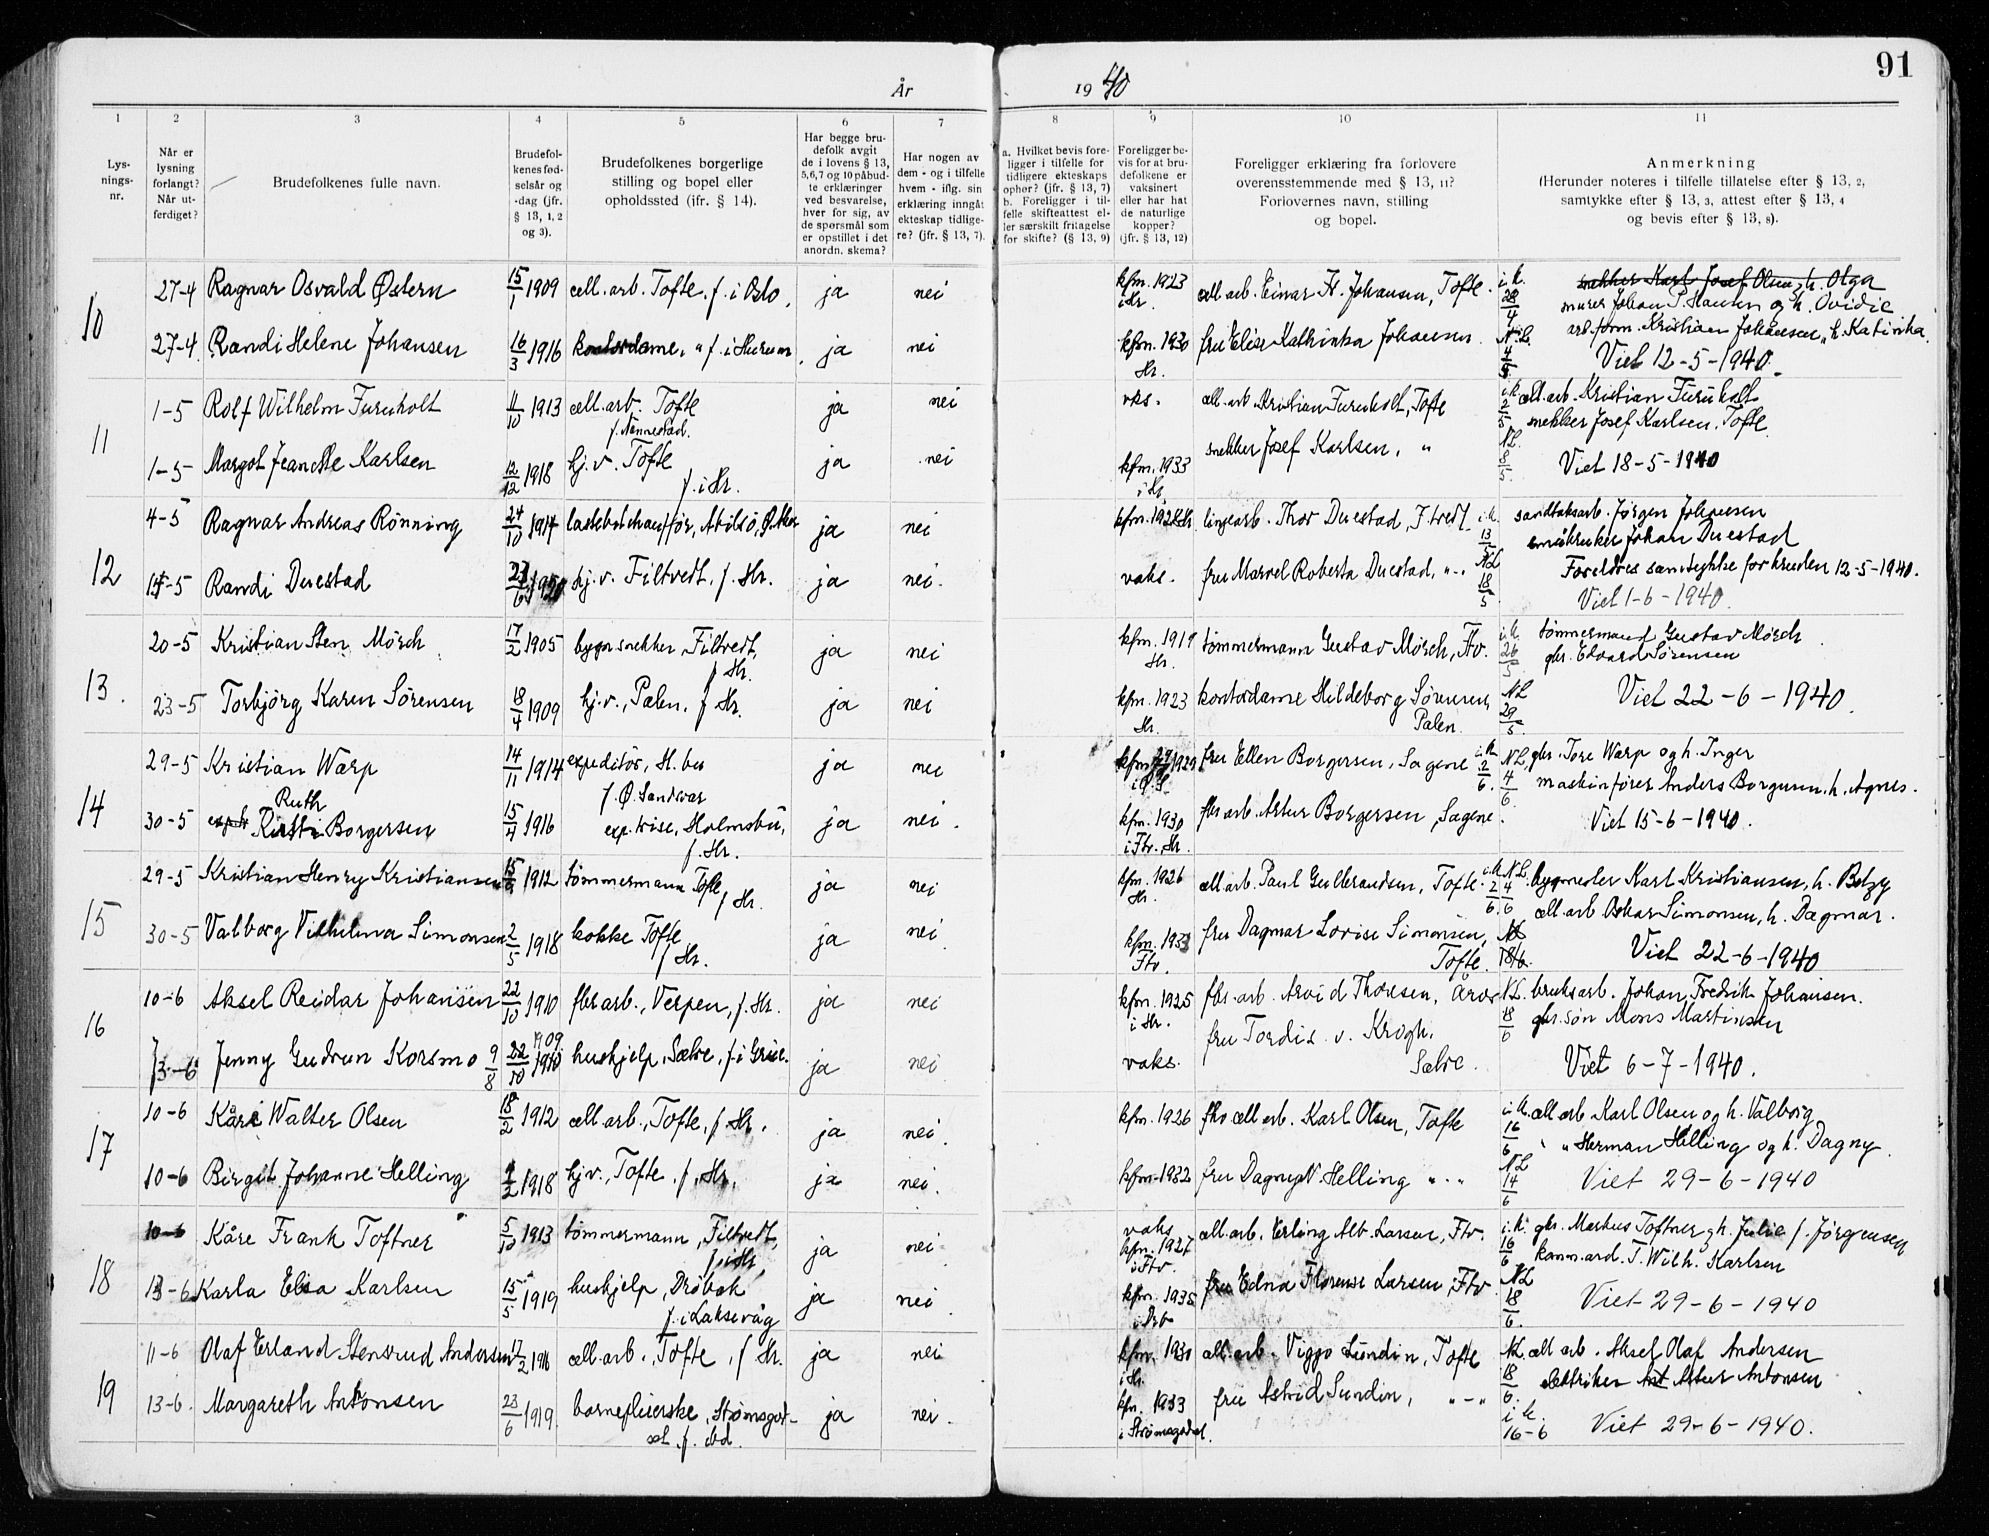 91
År
19 40
1
2
3
4
5
6
7
8
9
10
11
Lys-
nings-
nr.
Når er
lysning
forlangt?
Når ut-
ferdiget?
Brudefolkenes fulle navn.
Brudefol-
kenes fød-
selsår og
-dag (jfr.
§ 13, 1, 2
og 3).
Brudefolkenes borgerlige
stilling og bopel eller
opholdssted (ifr. § 14).
Har begge bru-
defolk avgit
de i lovens § 13,
5,6,7 og 10 påbud-
te erklæringer
ved besvarelse,
hver for sig, av
de spørsmål som
er opstillet i det
anordn. skema?
Har nogen av
dem - og i tilfelle
hvem - iflg. sin
erklæring inngåt
ekteskap tidlige-
re? (jfr. § 13, 7).
a. Hvilket bevis fore-
ligger i tilfelle for
tidligere ekteskaps
ophør? (jfr. § 13, 7)
b. Foreligger i til-
felle skifteattest el-
ler særskilt fritagelse
for skifte? (§ 13, 9)
Foreligger be-
vis for at bru-
defolkene er
vaksinert
eller har hat
de naturlige
kopper?
(jfr. § 13, 12)
Foreligger erklæring fra forlovere
overensstemmende med § 13, 11?
Forlovernes navn, stilling
og bopel.
Anmerkning
(Herunder noteres i tilfelle tillatelse efter § 13, 2,
samtykke efter § 13, 3, attest efter § 13, 4
og bevis efter § 13, 8).
10
27-4 Ragnar Osvald Østern 15/1 1909 cell. arb. Tofte, f. i Oslo. ja nei kfm. 1923 i Hr. cell. arb. Einar Fr. Johansen, Tofte. i.k. 28/4 snekker Karl Josef Olsen, h. Olga
murer Johan P. Hansen og h. Ovidie
arb.form. Kristian Johansen, h. Katinka.
27-4 Randi Helene Johansen 16/3 1916 kontordame, " f. i Hurum. ja nei kfm. 1930 Hr. fru Elise Kathinka Johansen N.L. 4/5 Viet 12-5-1940.
11
1-5 Rolf Wilhelm Furuholt 11/10 1913 cell. arb. Tofte ja nei vks. cell. arb. Kristian Furuholt, Tofte i.k. 2/5 cell. arb. Kristian Furuholt
snekker Josef Karlsen. Tofte.
1-5 Margot Jeanette Karlsen 12/12 1918 hj. v. Tofte f. i Hr. ja nei kfm. 1933 i Hr. snekker Josef Karlsen, " N.L. 8/5 Viet 18-5-1940
12
4-5 Ragnar Andreas Rönning 24/10 1914 lastebilchauffør, Abilsö, Ø. Aker ja nei kfm. 1928 Hr. lingearb. Thor Duestad, Filtvedt i.k. 13/5 sandtaksarb. Jörgen Johansen
småbruker Johan Duestad
15-5 Randi Duestad 1920 hj. v. Filtvedt, f. Hr. ja nei. vaks. fru Marvel Roberta Duestad, " - . NL 18/5 Foreldres samtykke for bruden 12-5-1940.
Viet 1-6-1940.
13.
20-5 Kristian Sten Mörch 17/2 1905 bygn.snekker, Filtvedt, f. Hr. ja nei kfm. 1919 Hr. tömmermann Gustav Mörch, Ftv. i.k. 26/5 tömmermand Gustav Mörch
gbr. Edvard Sörensen
23-5 Torbjörg Karen Sörensen 18/4 1909 hj.v., Palen, f. Hr. ja nei kfm. 1923 Hr. kontordame Hildeborg Sörensen, Palen. NL 29/5. Viet 22-6-1940.
14
29-5 Kristian Warp 14/11 1914 expeditör, H. bu f. Ø. Sandsvær ja nei fru Ellen Borgersen, Sagene i.k. 2/6. N.L. 4/6. gbr. Tore Warp og h. Inger
maskinförer Anders Borgersen, h. Agnes.
30-5 Ruth Borgersen 15/4 1916 exp.trise, Holmsbu, f. Hr. ja nei. kfm. 1930 i Ftv. Hr. fbr arb. Artur Borgersen, Sagene. Viet 15-6-1940.
15
29-5 Kristian Henry Kristiansen 1912 tömmermann Tofte, f. Hr. ja nei kfm. 1926 Hr. cell. arb. Paul Gulbrandsen, Tofte. i.k. 2/6. N.L. 4/6 bygmester Karl Kristiansen, h. Betzy
cell. arb Oskar Simonsen, h. Dagmar.
30-5 Valborg Vilhelma Simonsen 2/5 1918 kokke Tofte f. Hr. ja nei kfm. 1933 Ftv. fru Dagmar Lovise Simonsen, Tofte. Viet 22-6-1940
16
10-6 Aksel Reidar Johansen 22/10 1910 fbr. arb., Verpen, f. Hr. ja nei kfm. 1925 i Hr. fbr. arb. Arvid Thoresen, Åros N.L. 18/6 bruksarb. Johan Fredrik Johansen.
gbr. sön Mons Martinsen
13-6 Jenny Gudrun Korsmo 9/8 1909 22/10 1910 hushjelp, Sætre, f. i Grue. ja nei. vaks. fru Tordis v. Krogh, Sætre. Viet 6-7-1940.
17
10-6 Kåre Walter Olsen 18/2 1912 cell arb., Tofte, f. Hr. ja nei. kfm. 1926 cell arb. Karl Olsen, Tofte i.k. 16/6 cell arb Karl Olsen og h. Valborg
" " Herman Helling og h. Dagny.
10-6 Birgit Johanne Helling 1918 hj v., Tofte, f. Hr. ja nei. kfm. 1932 fru Dagny N. Helling " . " NL 14/6 Viet 29-6-1940
18
10-6 Kåre Frank Toftner 5/10 1913 tömmermann, Filtvedt, f. i Hr. ja nei vaks kfm. 1927 i Ftv. cell. arb. Erling Alb. Larsen, Ftv. i.k. 16/6 gbr. Markus Toftner, h. Julie f. Jörgensen
komm.arb. T. Wilh. Karlsen
13-6 Karla Elsa Karlsen 15/5 1919 hushjelp, Dröbak f. i Laksevåg ja nei kfm. 1935 i Drb fru Edna Florense Larsen, Ftv NL 18/6. Viet 29-6-1940
19
11-6 Olaf Erland Stensrud Andersen 1916 cell. arb., Tofte, f. Hr. ja nei kfm. 1930 i Hr. cell. arb. Viggo Lundin, Tofte NL 18/6. cell arb. Aksel Olaf Andersen
elektriker Artur Antonsen
13-6. Margareth Antonsen 23/6 1919 barnepleierske, Strömsgod- set f. ibd. ja nei. kfm. 1933 i Strömsgodset. fru Astrid Lundin, " - " i.k. 16-6 Viet 29-6-1940.